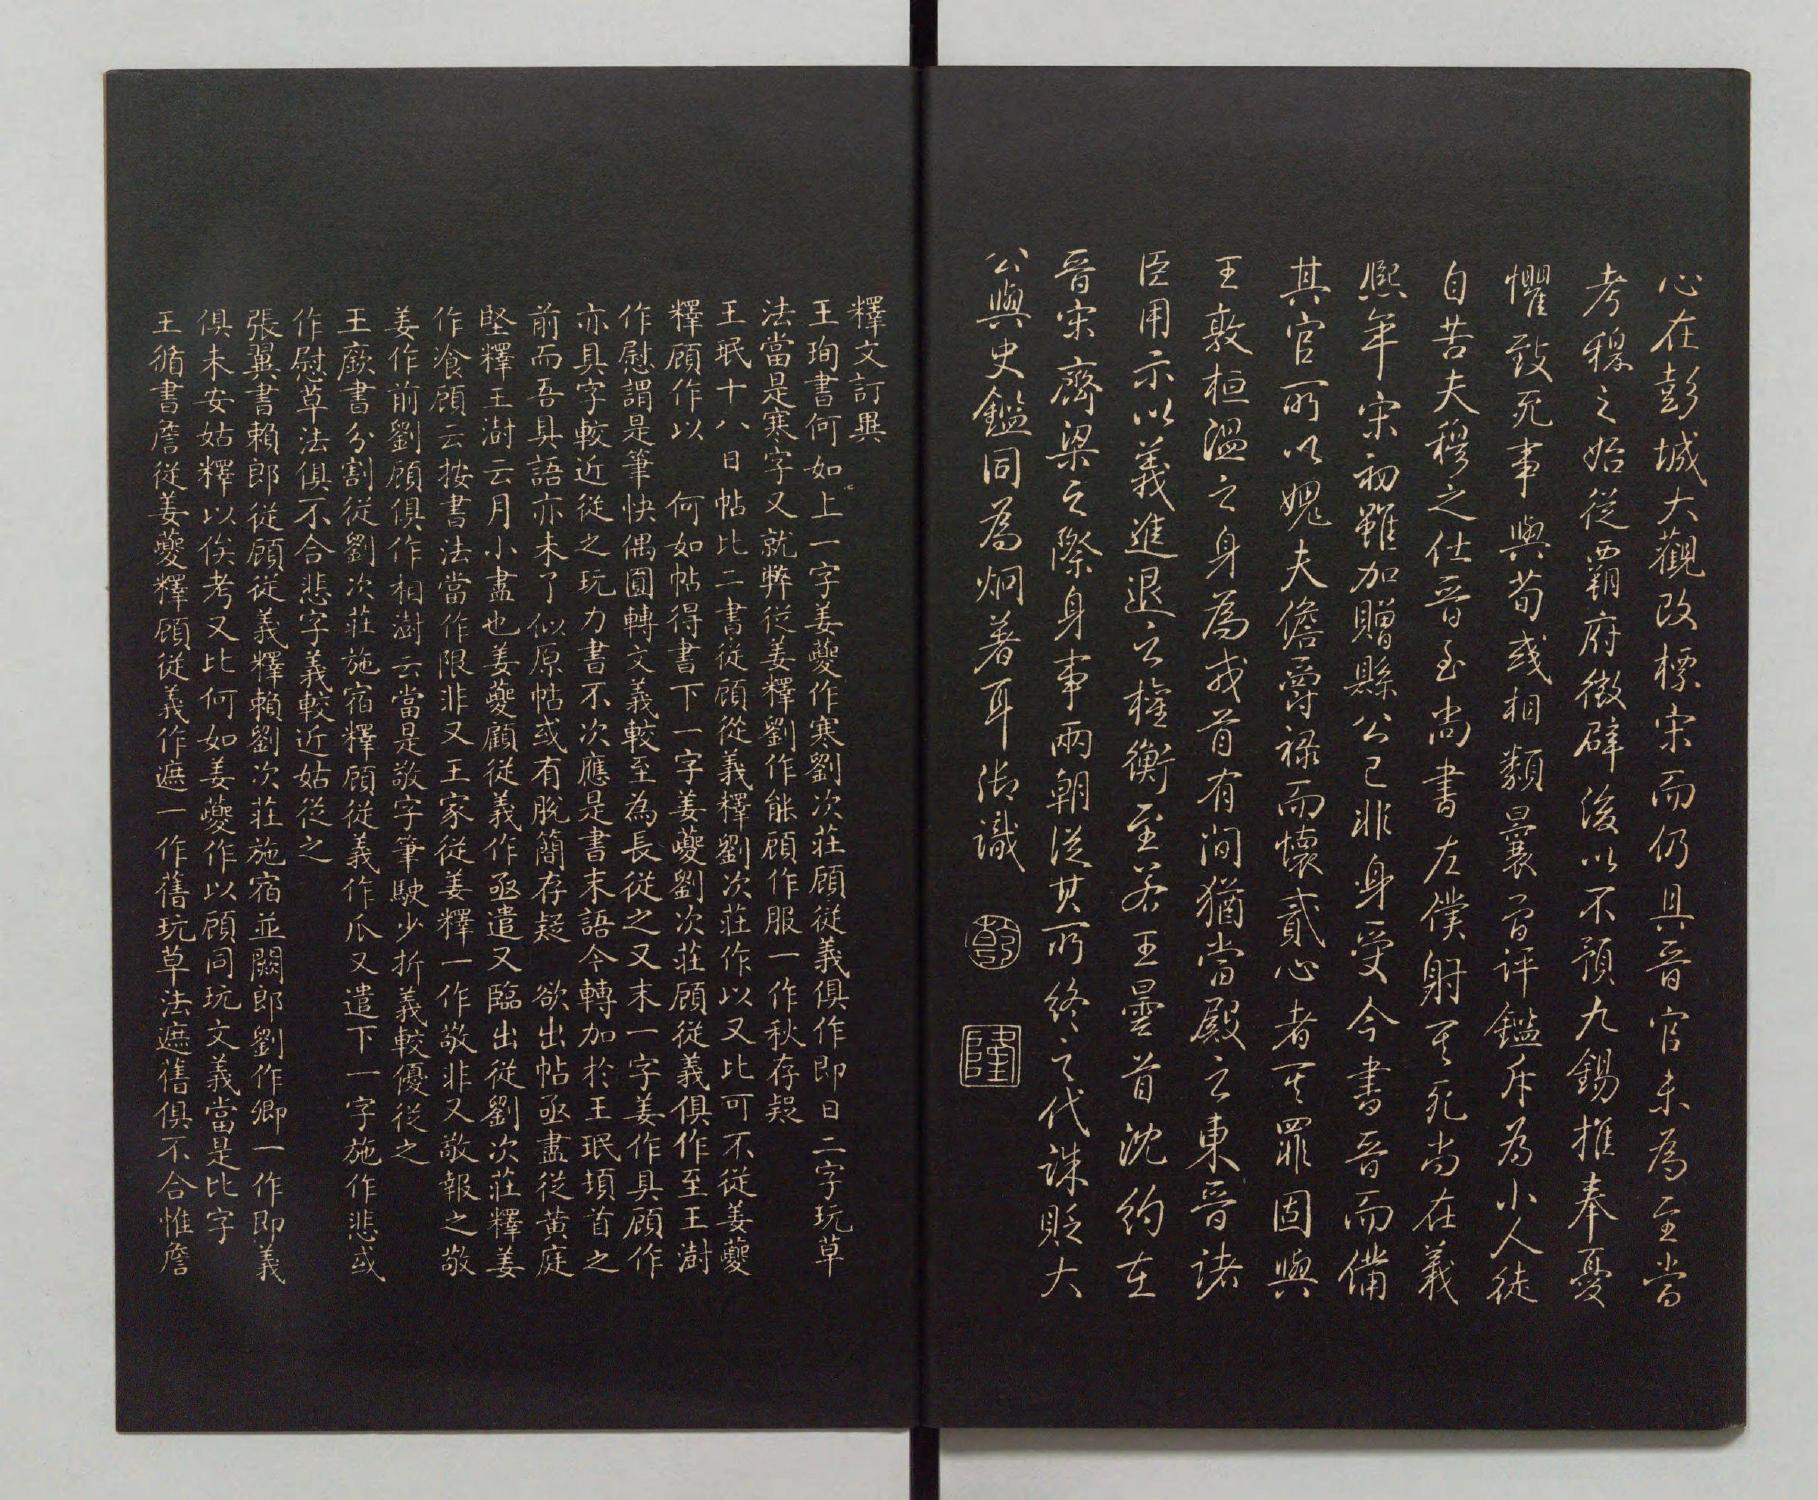 心在彭城大觀改標宋而仍具晉官未為至當
考穆之始從霸府徵辟後以不預九錫推奉憂
懼致死事與荀彧相類曩曾評鑑斥為小人徒
自苦夫穆之仕晉至尚書左僕射其死尚在義
熙年宋初雖加贈縣公已非身受今書晉而備
其官所以媿夫儋爵祿而懷貳心者其罪固與
王敦桓溫之身為戎首有間猶當殿之東晉諸
臣用示以義進退之權衡至若王曇首沈約在
晉宋齊梁之際身事兩朝從其所終之代誅貶大
公與史鑑同為炯著耳御識
乾
隆
釋文訂異
王珣書何如上一字姜夔作寒劉次莊顧從義俱作即日二字玩草
法當是寒字又就弊從姜釋劉作能顧作服一作秋存疑
王珉十八日帖比二書從顧從義釋劉次莊作以又比可不從姜夔
釋顧作以 何如帖得書下一字姜夔劉次莊顧從義俱作至王澍
作慰謂是筆快偶圓轉文義較至為長從之又末一字姜作具顧作
亦具字較近從之玩力書不次應是書末語今轉加於王珉頊首之
前而吾具語亦未了似原帖或有脫簡存疑 欲出帖亟盡從黃庭
堅釋王澍云月小盡也姜夔顧從義作亟遣又臨出從劉次莊釋姜
作飡顧云按書法當作限非又王家從姜釋一作敬非又敬報之敬
姜作前劉顧俱作相澍云當是敬字筆駛少折義較優從之
王廞書分割從劉次莊施宿釋顧從義作爪又遣下一字施作悲或
作慰草法俱不合悲字義較近姑從之
張翼書賴郎從顧從義釋賴劉次莊施宿並闕郎劉作卿一作即義
俱未安姑釋以俟考又比何如姜夔作以顧同玩文義當是比字
王循書詹從姜夔釋顧從義作遮一作舊玩草法遮舊俱不合惟詹